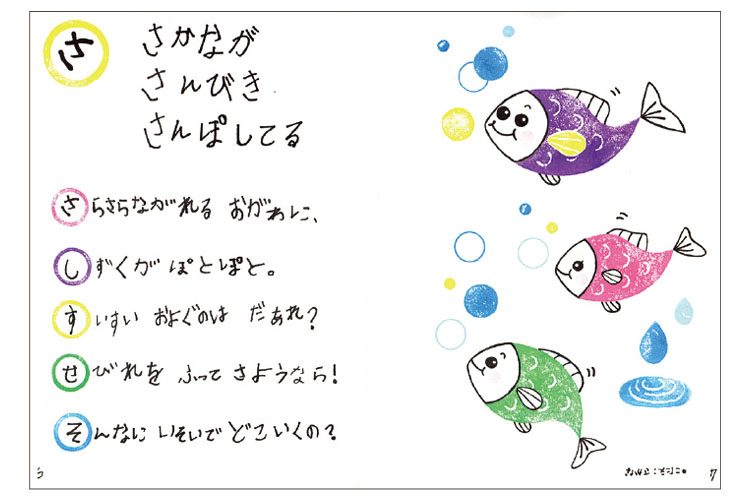 さ
さかなが
さんびき
さんぽしてる
さらさらながれる おがわに、
しずくが ぽとぽと。
すいすい およぐのは だあれ?
せびれを ふって さようなら!
そんなに いそいで どこいくの?
7